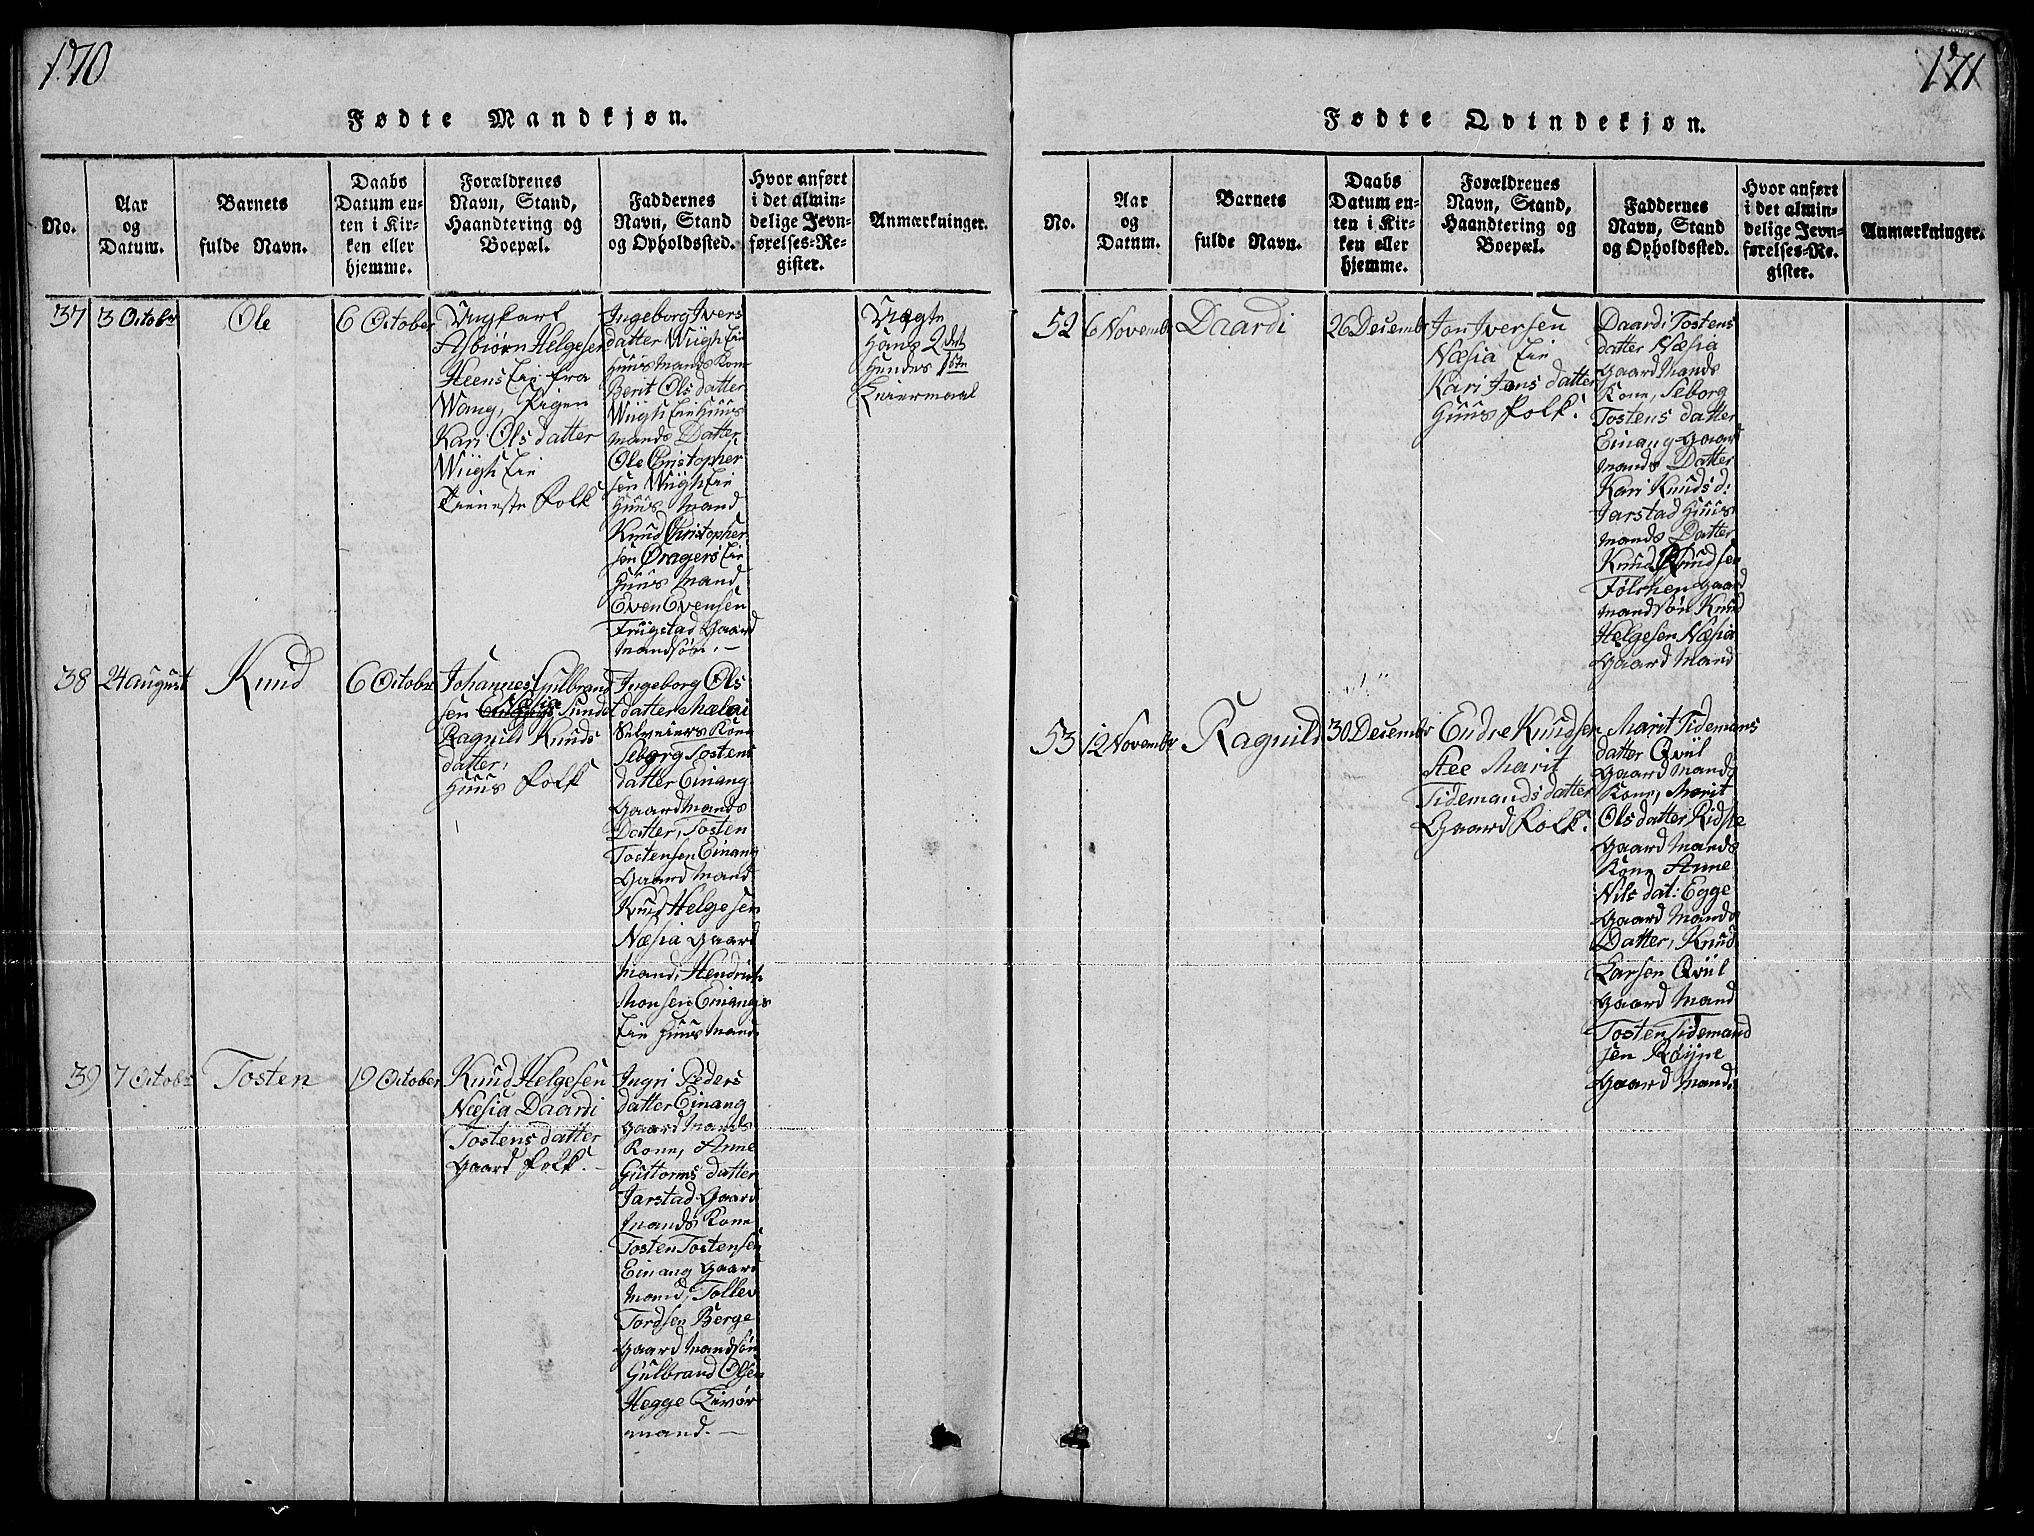 170
Fødte Mandkjøn.
No.
Aar
og
Datum.
Barnets
fulde Navn.
Daabs
Datum en-
ten i Kir-
ken eller
hjemme.
Forældrenes
Navn, Stand,
Haandtering og
Boepæl.
Faddernes
Navn, Stand
og Opholdssted.
Hvor anført
i det almin-
delige Jevn-
førelses-Re-
gister.
Anmærkninger.
37
3 Octobr
Ole
6 October
Ungkarl
Asbiørn Helgesen
Heens Eie fra
Wang, Pigen
Kari Olsdatter
Wiigh Eie
Tieneste Folk
Ingeborg Ivers
datter Wiigh Eie
Huusmands Kone
Berit Olsdatter
Wiigh Eie Huus
mands Datter,
Ole Christopher
sen Wiigh Eie
Huus Mand
Knud Christopher
sen Øragers Eie
Huus Mand
Even Evensen
Frugstad Gaard
mandsøn. —
Hans 2det
Hendes 1ste
Leiermaal
38
24 august
Knud
6 Octobr
Johannes Gulbrand
sen Næsia
Ragnild Knuds
datter,
Huus Folk
Ingeborg Ols
datter Mælai
Selveiers Kone
Seborg Tostens
datter Einang
Gaardmands
Datter, Tosten
Tostensen Einang
Gaard Mand
Knud Helgesen
Næsia Gaard
Mand, Hendrich
Monsen Einangs
Eie Huus Mand
39
7 Octobr
Tosten
19 October
Knud Helgesen
Næsia Daardi
Tostens datter
Gaard Folk. —
Ingri Peders
datter Einang
Gaard Mands
Kone, Anne
Guttorms datter
Jarstad Gaard
mands Kone
Tosten Tostensen
Einang Gaard
Mand, Tollev
Tordsen Berge
Gaard Mandsøn
Gulbrand Olsen
Hegge
mand. —
171
Fødte Qvindekjøn.
No.
Aar
og
Datum.
Barnets
fulde Navn.
Daabs
Datum en-
ten i Kir-
ken eller
hjemme.
Forældrenes
Navn, Stand,
Haandtering og
Boepæl.
Faddernes
Navn, Stand
og Opholdssted.
Hvor anført
i det almin-
delige Jevn-
førelses-Re-
gister.
Anmærkninger.
52
6 Novembr
Daardi
26 Decembr
Jon Iversen
Næsia Eie
Kari Jons datter
Huus Folk.
Daardi Tostens
datter Næsia
Gaard Mands
Kone, Seborg
Tostens datter
Einang Gaard
mands Datter
Kari Knuds d:
Jarstad Huus
mands Datter
Knud Knudsen
Følshen Gaard
mandsøn Knud
Helgesen Næsia
Gaard Mand
53
12 Novembr
Ragnild
30 Decembr
Endre Knudsen
Aee Marit
Tidemands datter
Gaard Folk.
Marit Tidemans
datter Qviil
Gaard Mands
Kone, Marit
Olsdatter Ridste
Gaard Mands
Kone Anne
Nils dat: Egge
Gaard Mands
Datter, Knud
Larsen Qviil
Gaard Mand
Tosten Tidemand
sen Røyne
Gaard Mand.